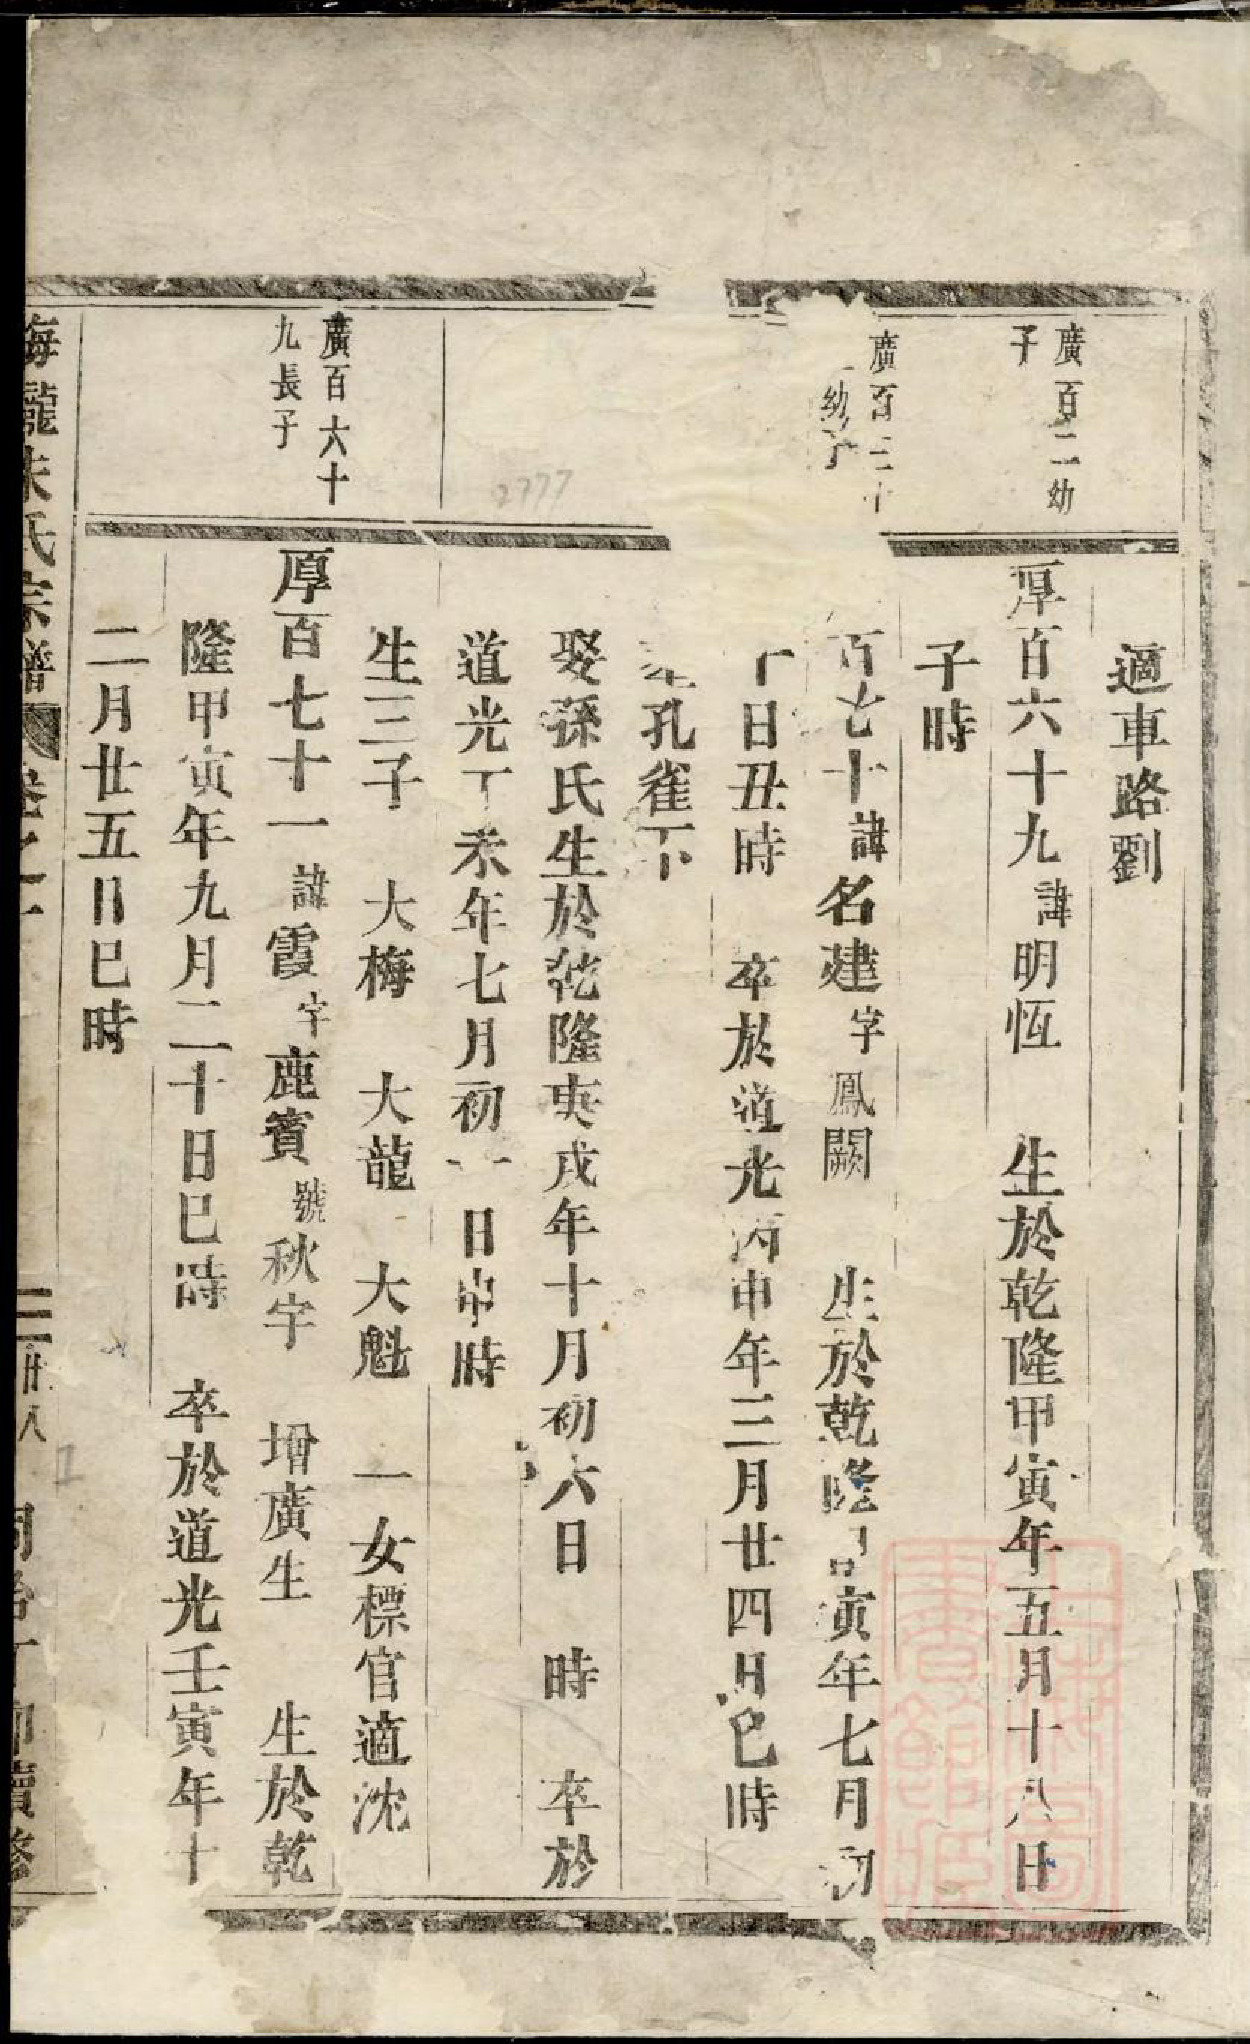 適車路劉
廣百二幼
子
厚百六十九諱明恆 生於乾隆甲寅年五月十八日
子時
廣百三十
幼子
百七十諱名建字鳳闕 生於乾隆甲寅年七月初
十日丑時 卒於道光丙申年三月廿四日巳時
孔雀下
娶孫氏生於乾隆庚戌年十月初六日 時 卒於
道光丁未年七月初一日申時
生三子 大梅 大龍 大魁 一女標官適沈
廣百六十
九長子
厚百七十一諱霞字鹿賓號秋宇 增廣生 生於乾
隆甲寅年九月二十日巳時 卒於道光壬寅年十
二月廿五日巳時
梅隴朱氏宗譜 卷之 二 廿八 同治丁卯續修
2777